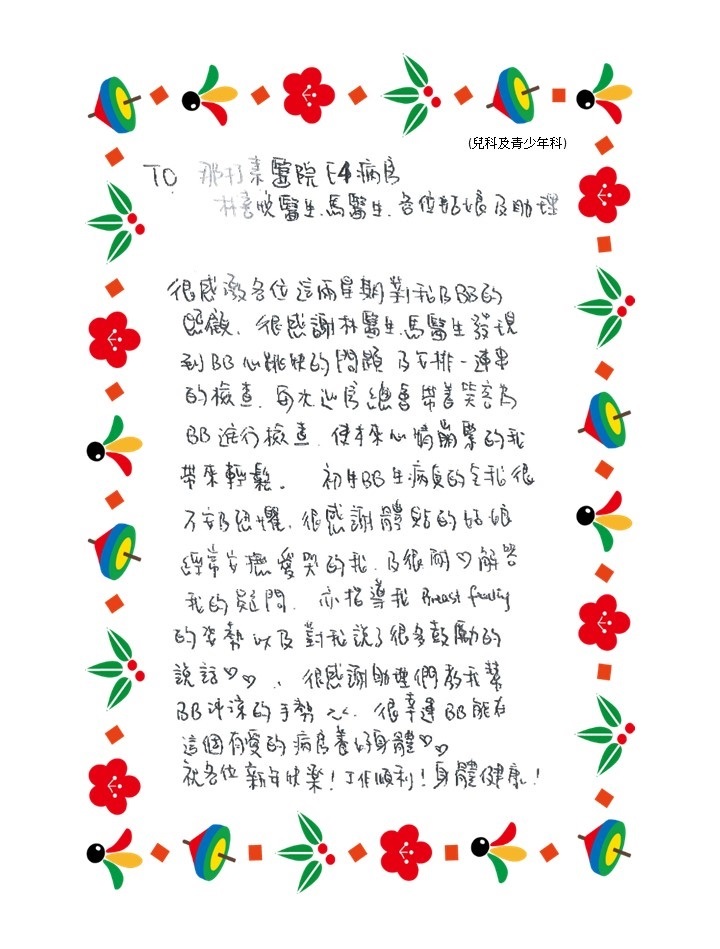 (兒科及青少年科)
TO 那打素醫院 E4 病房
林醫生、馬醫生、各位姑娘及助理
很感激各位這兩星期對我及BB的
照顧、很感謝林醫生、馬醫生發現
到BB心跳快的問題及安排一連串
的檢查、每次巡房總會帶着笑容為
BB進行檢查、使本來心情崩緊的我
帶來輕鬆。 初生BB生病真的令我很
不安及恐懼、很感謝體貼的姑娘
經常安撫愛哭的我、及很耐♡解答
我的疑問、亦指導我 Breast feeding
的姿勢以及對我說了很多鼓勵的
說話♡♡、很感謝助理們教我幫
BB沖涼的手勢、很幸運BB能在
這個有愛的病房養好身體♡♡
祝各位新年快樂!工作順利!身體健康!